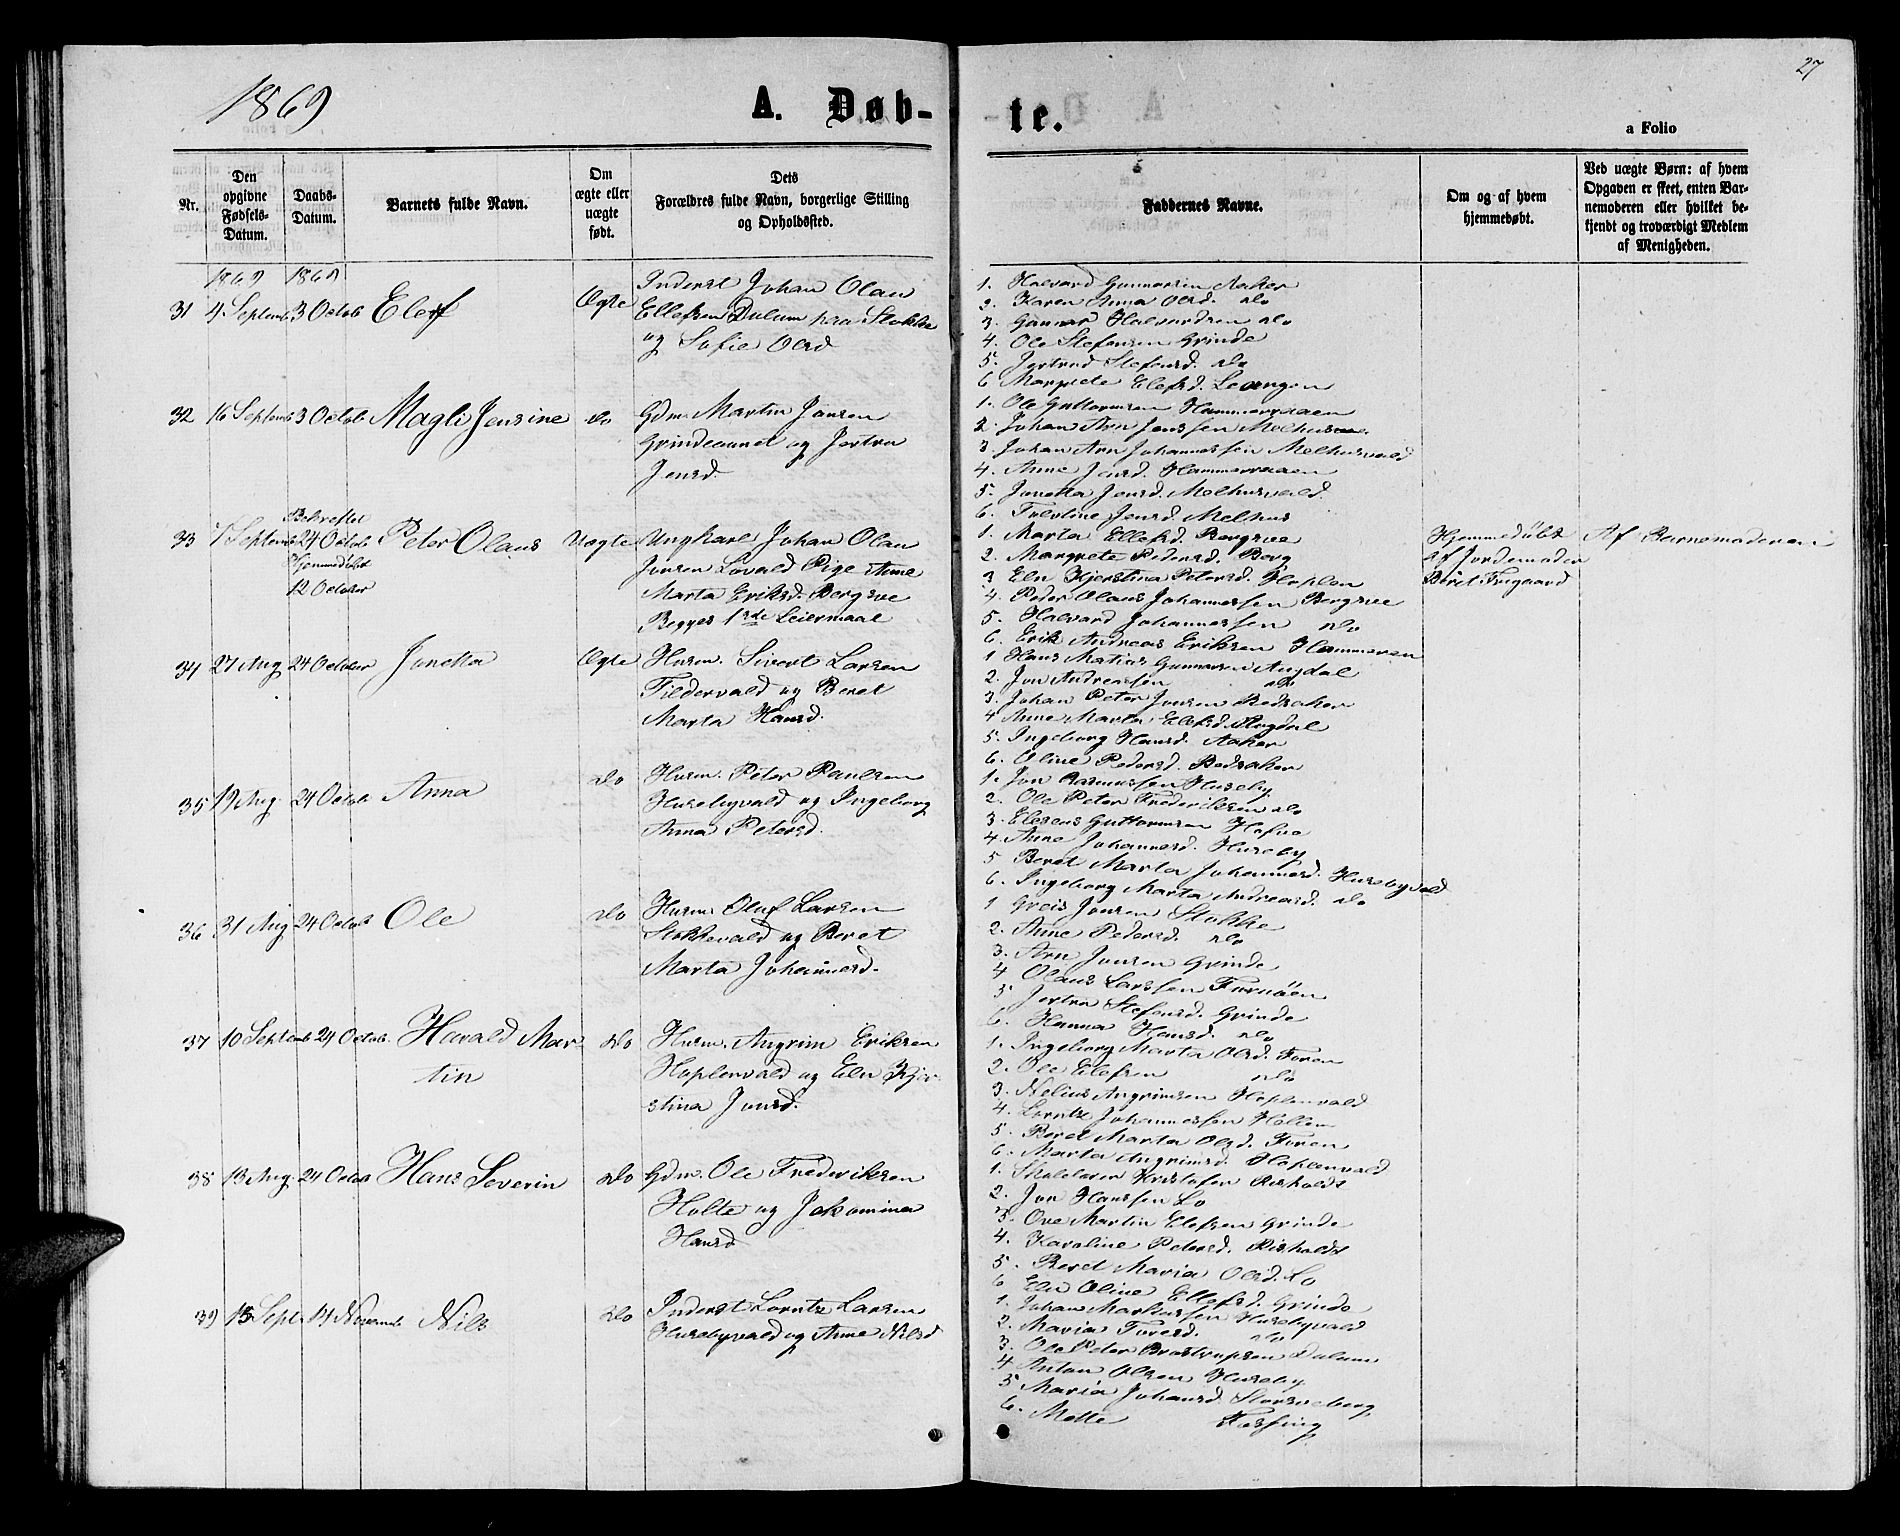 1869
A. Døb-
te.
27
a Folio
Nr.
Den
opgivne
Fødsels-
Datum.
Daabs-
Datum.
Barnets fulde Navn.
Om
ægte eller
uægte
født.
Dets
Forældres fulde Navn, borgerlige Stilling
og Opholdssted.
Faddernes Navne.
Om og af hvem
hjemmedøbt.
Ved uægte Børn: af hvem
Opgaven er skeet, enten Bar-
nemoderen eller hvilket be-
kjendt og troværdigt Medlem
af Menigheden.
1869 1869
31 4 Septemb 3 Octob Elef Ægte Inderst Johan Olau
Ellefsen Dalum paa Stokke
og Sofie Olsd
1. Halvard Gunnarsen Aaker
2. Karen Anna Olsd. do
3. Gunnar Halvardsen do
4. Ole Stefansen Grinde
5. Jertrud Stefansd. do
6 Margrete Elefsd. Levangen
32 16 Septemb 3 Octob Magli Jensine do Gdm. Martin Jonsen
Grindeaunet og Jertru
Jensd.
1. Ole Guttormsen Hammervaaen
2. Johan Arn Jenssen Melhus
3 Johan Arn Johannessen Melhusvald
4. Anne Jensd. Hammervaaen
5. Jonetta Jensd. Melhusvald.
6. Jensd. Melhus
33 7 Septemb Bekræftet
24 Octob
Hjemmedøbt
12 October
Peter Olaus Uægte Ungkarl Johan Olau
Jonsen Lovald Pige Anne
Marta Eriksd. Bergsve
Begges 1ste Leiermaal
1. Marta Ellefsd. Bergsve
2. Margrete Pedersd. Berg
3 Eln Kjerstina Petersd. Hoplen
4. Peder Olaus Johannessen Bergsve
5. Halvard Johannessen do
6. Erik Andreas Eriksen Hammeren
Hjemmedöbt
af Jordemoder
Beret Fuglaard
Af Barnemoderen
34 27 Aug 24 October Jonetta Ægte Husm. Sivert Larsen
Tildervald og Beret
Marta Hansd.
1 Hans Matias Gunnarsen Augdal
2. Jon Andreassen do
3. Johan Peter Jonsen Bedsaker
4 Anne Marta Elefsd. Mogdal
5. Ingeborg Hansd. Aaker
6. Oline Pedersd. Bedsaker
35 19 Aug. 24 Octob Anna do Husm. Peter Paulsen
Husebyvald og Ingeborg
Anna Petersd.
1. Jon Rasmussen Huseby
2. Ole Peter Frederiksen do
3. Eleseus Guttormsen Hofne
4 Anne Johannesd. Huseby
5 Beret Marta Johannesd. Husebyvald
6. Ingeborg Marta Andreasd. do
36 31 Aug 24 Octob Ole do Husm. Oluf Larsen
Stokkevald og Beret
Marta Johannesd.
1 Greis Jonsen Stokke
2. Anne Pedersd. do
3. Arn Jonsen Grinde
4 Olaus Larssen Fornöen
5 Jertru Stefansd. Grinde
6. Hanna Hansd. do
37 10 Septemb 24 Octob. Harald Mar-
tin
do Husm. Angrim Eriksen
Hoplenvald og Eln Kjer-
stina Jonsd.
1. Ingeborg Marta Olsd. Foren
2. Ole Elefsen do
3. Nelius Angrimsen Hoplenvald
4. Lorntz Johannessen Holtem
5. Beret Marta Olsd. Foren
6. Marta Angrimsd. Hoplenvald
38 13 Aug. 24 Octob Hans Severin do Gdm. Ole Frederiksen
Holte og Jakomina
Hansd
1. Skolelærer Kristofer Risholdt
2. Jon Hanssen Lo
3. Ove Martin Elefsen Grinde
4. Karoline Petersd. Risholdt
5. Beret Maria Olsd. Lo
6 Eln Oline Ellefsd. Grinde
39 13 Sept. 14 Novemb Nils do Inderst Lorntz Larsen
Husebyvald og Anne Nilsd
1. Johan Markussen Husebyvald
2. Maria Toresd. do
3. Ole Peter Brostrupsen Dalum
4 Anton Olsen Huseby
5 Maria Johansd. Storsveberg
6. Mette